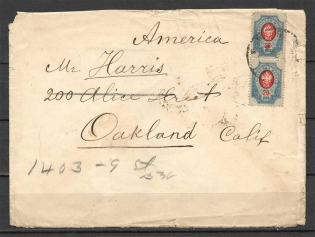 America
Mr. Harris
200 Alice Street
Oakland Calif
1403 - 9 St